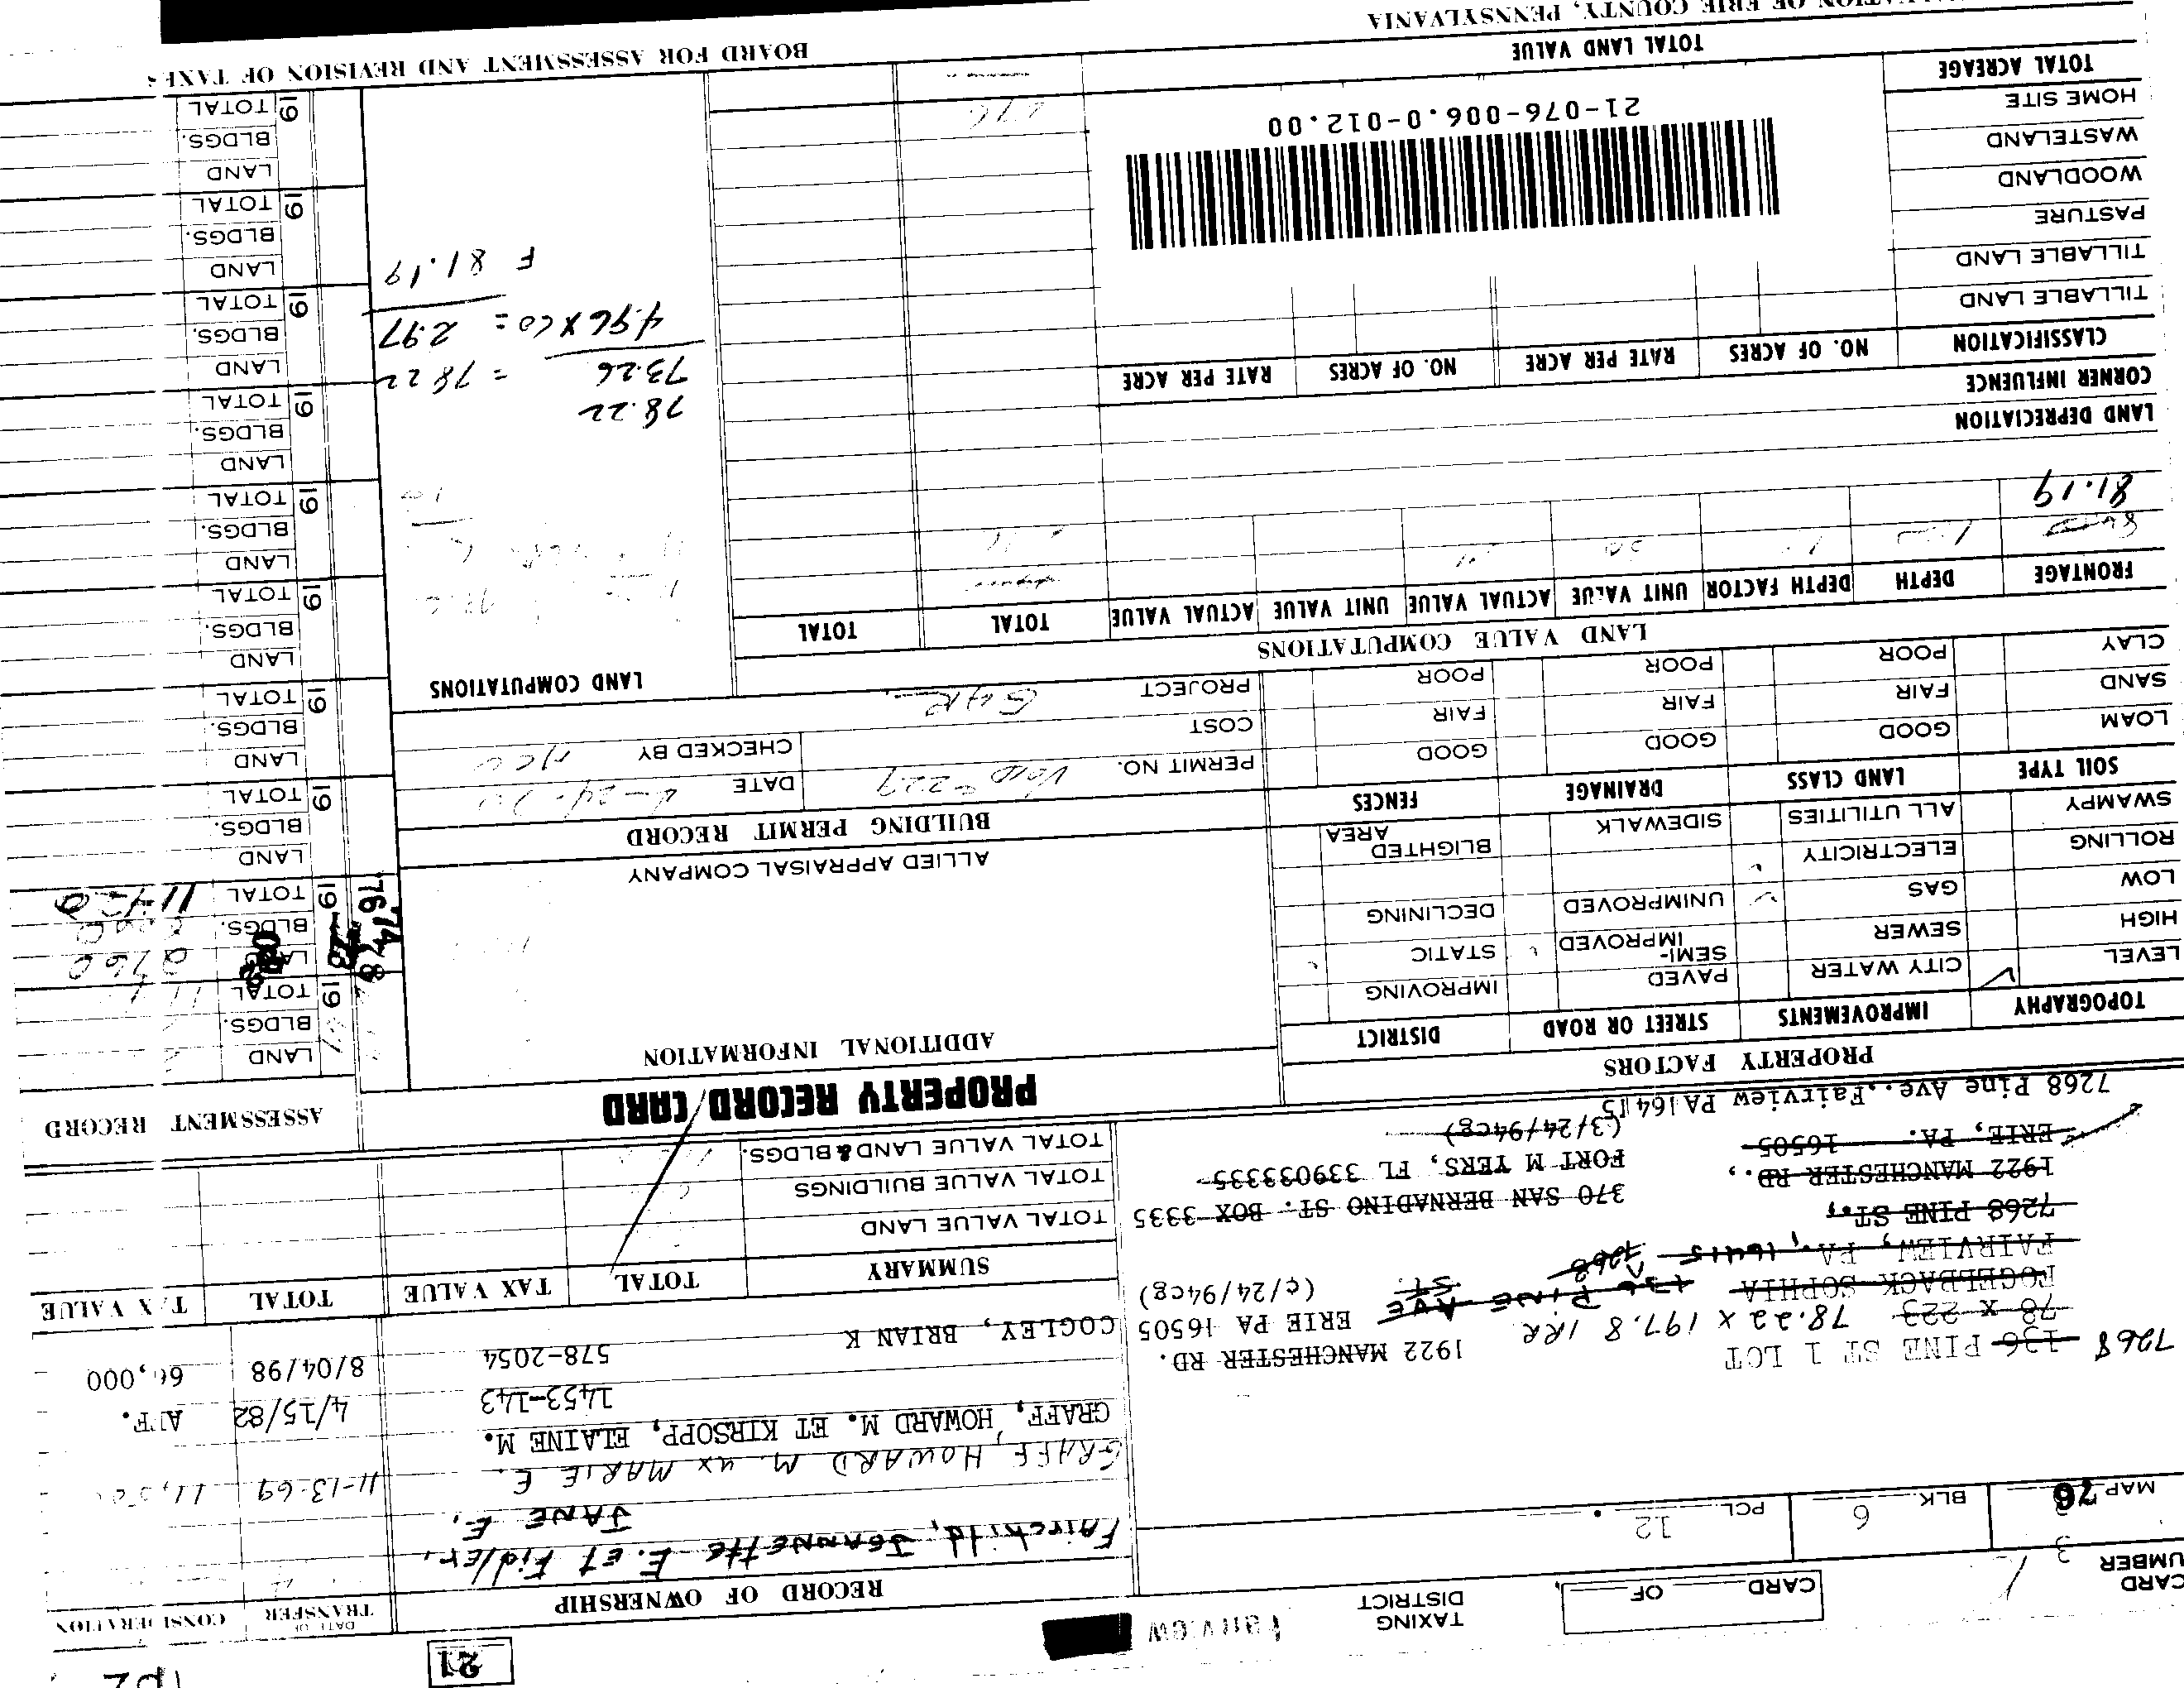 21
TAXING DISTRICT Fairview
CARD NUMBER 3
CARD OF
MAP 76 BLK. 6 PCL. 12
RECORD OF OWNERSHIP DATE OF TRANSFER CONSIDERATION
Fairchild, Jeannette E. et Fidler,
JANE E.
GRAFF, HOWARD M. ux MARIE E. 11-13-69
GRAFF, HOWARD M. ET KIRSOPP, ELAINE M.
1453-143 4/15/82 AFF.
578-2054 8/04/98
COGLEY, BRIAN K
7268 136 PINE ST 1 LOT
78 x 223 78.22 x 197.8 IRR
FOGELBACK SOPHIA 136 PINE AVE St.
FAIRVIEW, PA., 16415 7268
7268 PINE ST.,
1922 MANCHESTER RD.,
ERIE, PA. 16505
7268 Pine Ave., Fairview PA 16415
1922 MANCHESTER RD.
ERIE PA 16505
(¢/24/94cg)
370 SAN BERNADINO ST. BOX 3335
FORT M YERS, FL 339033335
(3/24/94cg)
SUMMARY TOTAL TAX VALUE TOTAL TAX VALUE
TOTAL VALUE LAND
TOTAL VALUE BUILDINGS
TOTAL VALUE LAND & BLDGS.
PROPERTY RECORD CARD
ASSESSMENT RECORD
PROPERTY FACTORS
TOPOGRAPHY IMPROVEMENTS STREET OR ROAD DISTRICT
LEVEL CITY WATER PAVED IMPROVING
HIGH SEWER SEMI-IMPROVED STATIC
LOW GAS UNIMPROVED DECLINING
ROLLING ELECTRICITY BLIGHTED AREA
SWAMPY ALL UTILITIES SIDEWALK
SOIL TYPE LAND CLASS DRAINAGE FENCES
LOAM GOOD GOOD GOOD
SAND FAIR FAIR FAIR
CLAY POOR POOR POOR
ADDITIONAL INFORMATION
ALLIED APPRAISAL COMPANY
BUILDING PERMIT RECORD
PERMIT NO. DATE
COST CHECKED BY
PROJECT GAR.
LAND VALUE COMPUTATIONS
LAND COMPUTATIONS
FRONTAGE DEPTH DEPTH FACTOR UNIT VALUE ACTUAL VALUE UNIT VALUE ACTUAL VALUE TOTAL TOTAL
81.19
LAND DEPRECIATION
CORNER INFLUENCE
CLASSIFICATION NO. OF ACRES RATE PER ACRE NO. OF ACRES RATE PER ACRE
TILLABLE LAND
TILLABLE LAND
PASTURE
WOODLAND
WASTELAND
HOME SITE
TOTAL ACREAGE
TOTAL LAND VALUE
21-076-006.0-012.00
78.22
73.26 = 78 22
4.96 X 60 = 2.97
F 81.19
LAND
BLDGS.
19 TOTAL
LAND
BLDGS.
19 TOTAL
76 74 78
LAND
BLDGS.
19 TOTAL
LAND
BLDGS.
19 TOTAL
LAND
BLDGS.
19 TOTAL
LAND
BLDGS.
19 TOTAL
LAND
BLDGS.
19 TOTAL
LAND
BLDGS.
19 TOTAL
LAND
BLDGS.
19 TOTAL
LAND
BLDGS.
19 TOTAL
OF ERIE COUNTY, PENNSYLVANIA
BOARD FOR ASSESSMENT AND REVISION OF TAXES